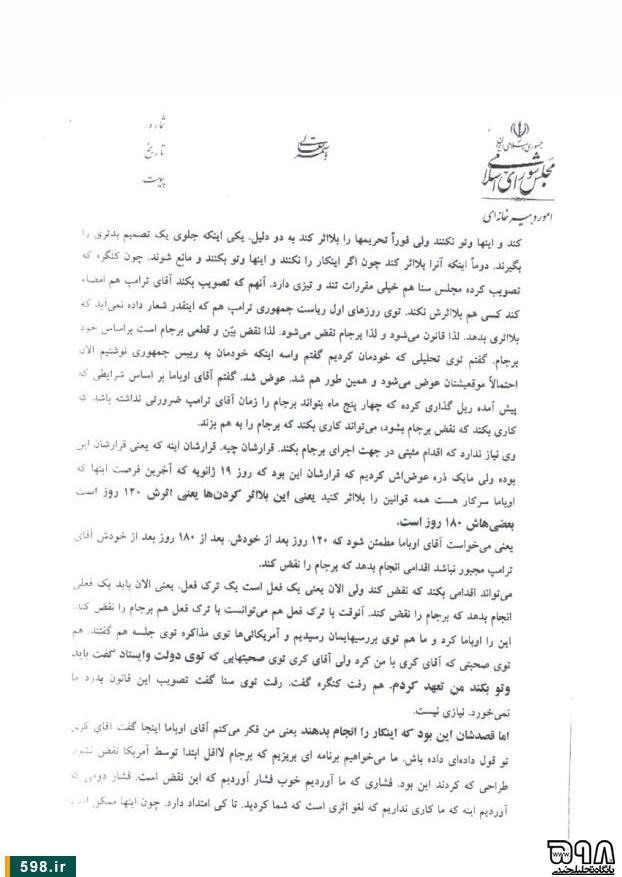 شماره
تاریخ
پیوست
باسمه تعالی
جمهوری اسلامی ایران
مجلس شورای اسلامی
امور دبیرخانه‌ای
کند و اینها وتو نکنند ولی فوراً تحریمها را بلااثر کند به دو دلیل. یکی اینکه جلوی یک تصمیم بدتری را
بگیرند. دوماً اینکه آنرا بلااثر کند چون اگر اینکار را نکنند و اینها وتو بکنند و مانع شوند. چون کنگره که
تصویب کرده مجلس سنا هم خیلی مقررات تند و تیزی دارد. آنهم که تصویب بکند آقای ترامپ هم امضاء
کند کسی هم بلااثرش نکند. توی روزهای اول ریاست جمهوری ترامپ هم که اینقدر شعار داده نمی‌آید که
بلااثری بدهد. لذا قانون می‌شود و لذا برجام نقض می‌شود. لذا نقض بیّن و قطعی برجام است براساس خود
برجام. گفتم توی تحلیلی که خودمان کردیم گفتم واسه اینکه خودمان به رییس جمهوری نوشتیم الان
احتمالاً موقعیتشان عوض می‌شود و همین طور هم شد. عوض شد. گفتم آقای اوباما بر اساس شرایطی که
پیش آمده ریل گذاری کرده که چهار پنج ماه بتواند برجام را زمان آقای ترامپ ضرورتی نداشته باشد که
کاری بکند که نقض برجام بشود، می‌تواند کاری بکند که برجام را به هم بزند.
وی نیاز ندارد که اقدام مثبتی در جهت اجرای برجام بکند. قرارشان چیه. قرارشان اینه که یعنی قرارشان این
بوده ولی مایک ذره عوض‌اش کردیم که قرارشان این بود که روز ۱۹ ژانویه که آخرین فرصت اینها که
اوباما سرکار هست همه قوانین را بلااثر کنید یعنی این بلااثر کردن‌ها یعنی اثرش ۱۲۰ روز است
بعضی‌هاش ۱۸۰ روز است.
یعنی می‌خواست آقای اوباما مطمئن شود که ۱۲۰ روز بعد از خودش. بعد از ۱۸۰ روز بعد از خودش آقای
ترامپ مجبور نباشد اقدامی انجام بدهد که برجام را نقض کند.
می‌تواند اقدامی بکند که نقض کند ولی الان یعنی یک فعل است یک ترک فعل. یعنی الان باید یک فعلی
انجام بدهد که برجام را نقض کند. آنوقت با ترک فعل هم می‌توانست با ترک فعل هم برجام را نقض کند.
این را اوباما کرد و ما هم توی بررسیهایمان رسیدیم و آمریکائی‌ها توی مذاکره توی جلسه هم گفتند. هم
توی صحبتی که آقای کری با من کرد ولی آقای کری توی صحبتهایی که توی دولت وایستاد گفت باید
وتو بکند من تعهد کردم. هم رفت کنگره گفت. رفت توی سنا گفت تصویب این قانون بدرد ما
نمی‌خورد. نیازی نیست.
اما قصدشان این بود که اینکار را انجام بدهند یعنی من فکر می‌کنم آقای اوباما اینجا گفت آقای کری
تو قول داده‌ای داده باش. ما می‌خواهیم برنامه ای بریزیم که برجام لااقل ابتدا توسط آمریکا نقض نشود
طراحی که کردند این بود. فشاری که ما آوردیم خوب فشار آوردیم که این نقض است. فشار دومی که
آوردیم اینه که ما کاری نداریم که لغو اثری است که شما کردید. تا کی امتداد دارد. چون اینها ممکن
598.ir
۵۹۸
www
پایگاه تحلیلی خبری